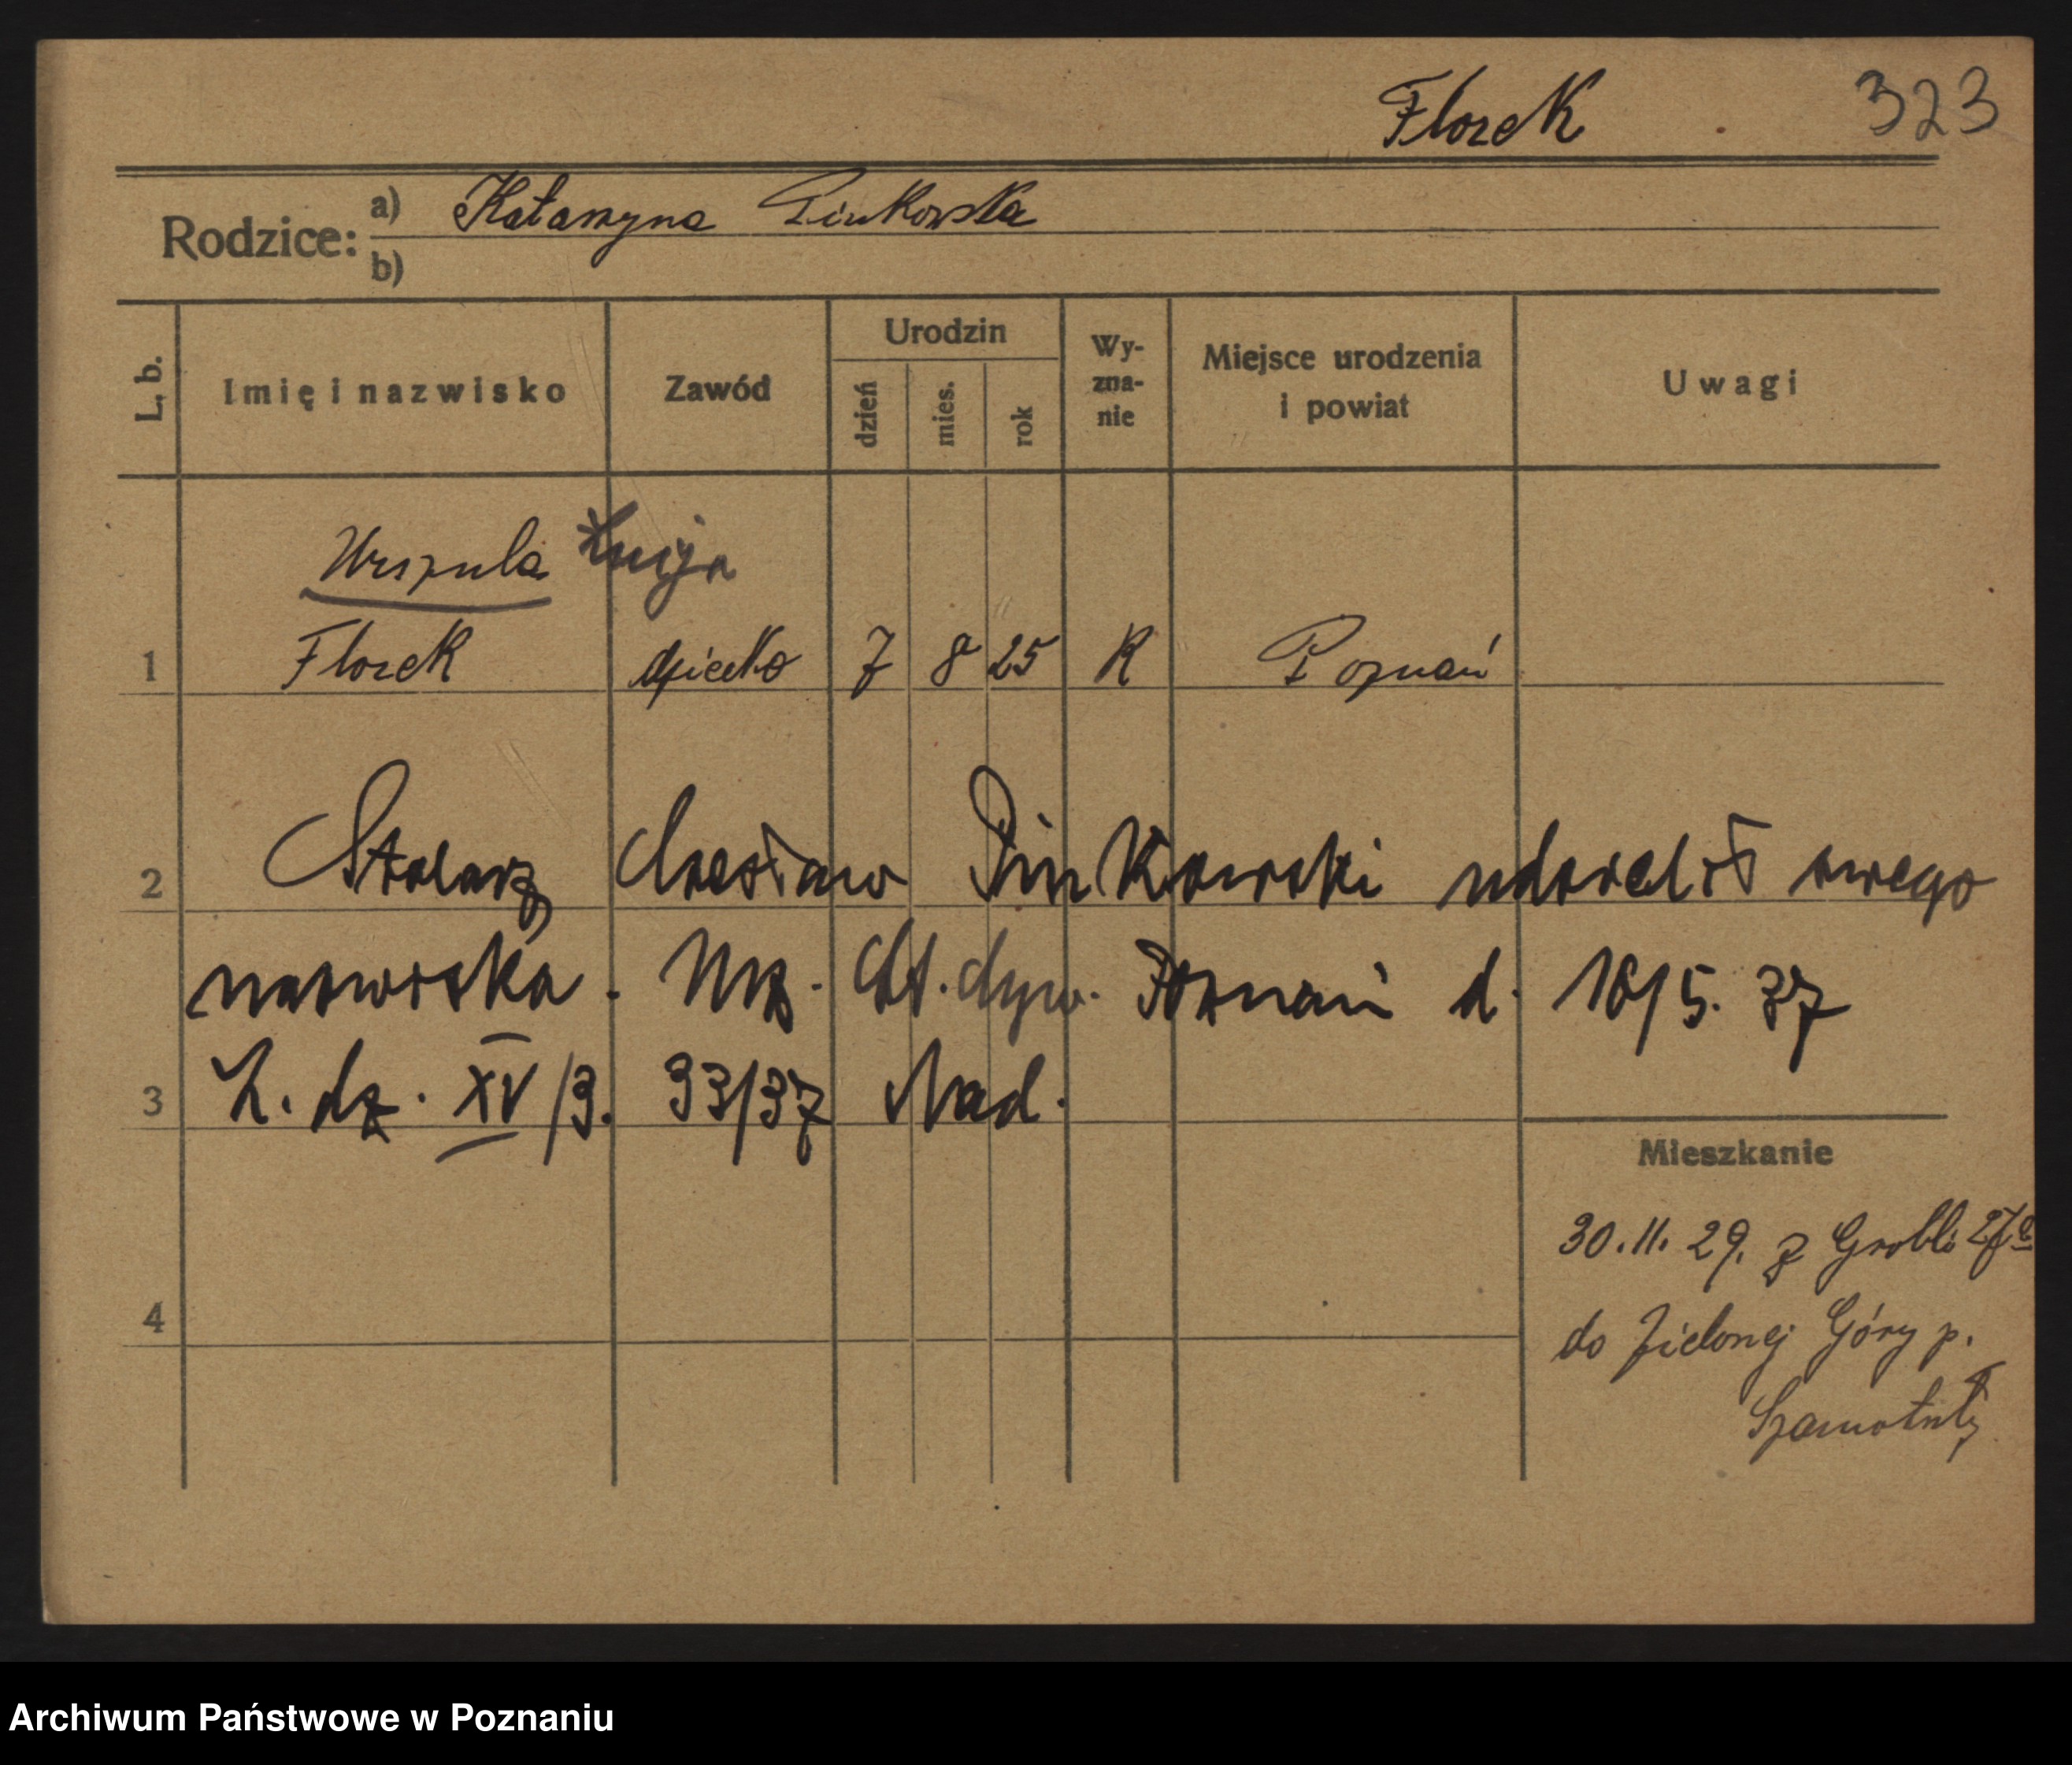 Florek 323
Rodzice:
a) Katarzyna Pinkowska
b)
L. b.
Imię i nazwisko
Zawód
Urodzin
dzień
mies.
rok
Wy-
zna-
nie
Miejsce urodzenia
i powiat
Uwagi
Urszula Łucja
1 Florek dziecko 7 8 25 K Poznań
2 Stolarz Czesław Pinkowski udzielił swego
nazwiska. Urz. St. cyw. Poznań d. 18/5. 37
3 L. dz. XV/3. 33/37 Nad.
Mieszkanie
30.11.29. z Grobli 27a
4
do Zielonej Góry p.
Szamotuły
Archiwum Państwowe w Poznaniu